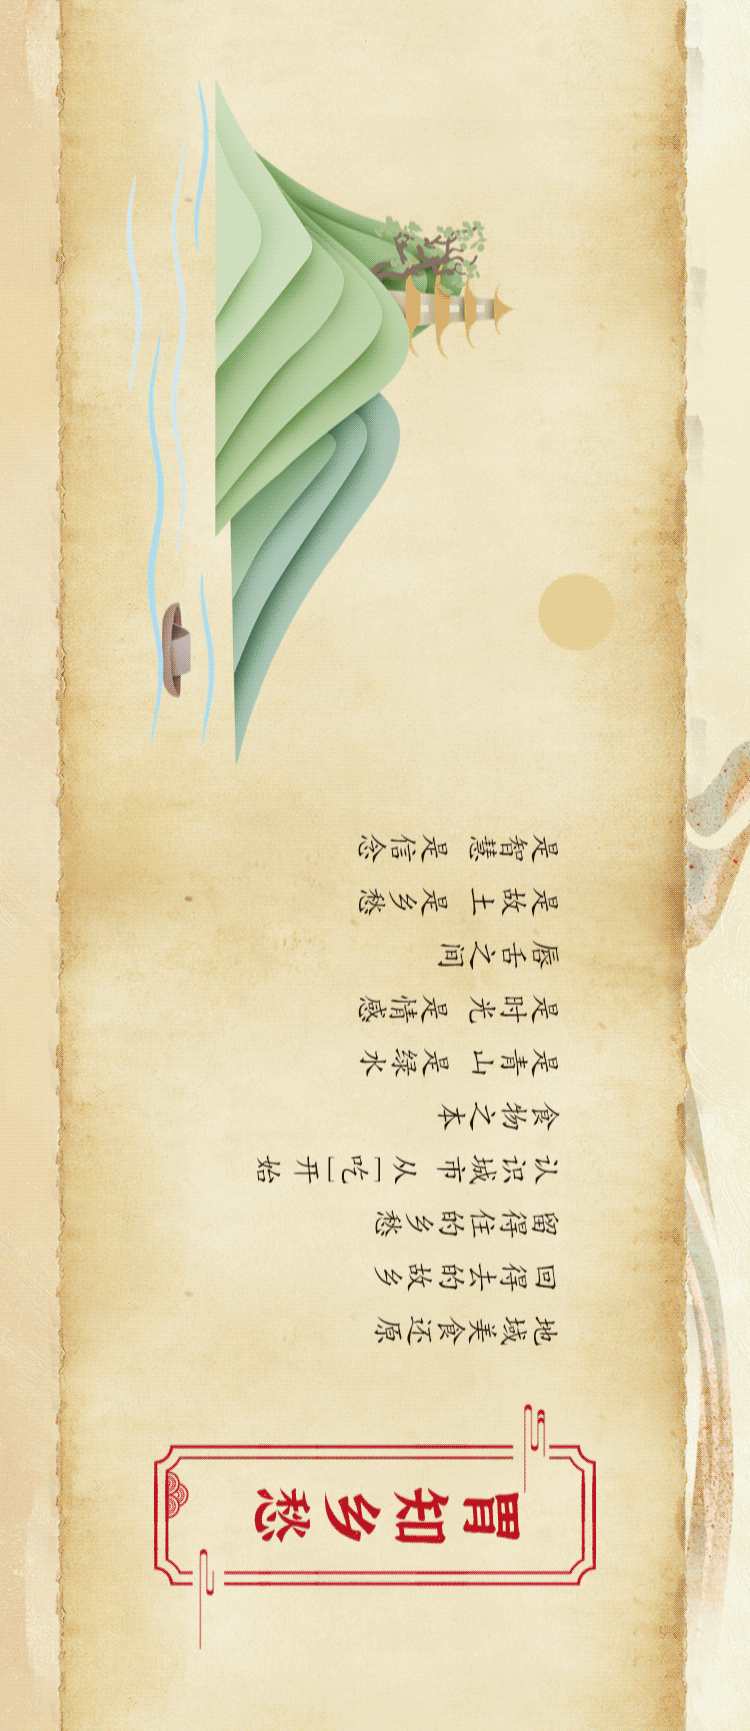 胃知乡愁
地域美食还原
回得去的故乡
留得住的乡愁
认识城市 从「吃」开始
食物之本
是青山 是绿水
是时光 是情感
唇舌之间
是故土 是乡愁
是智慧 是信念